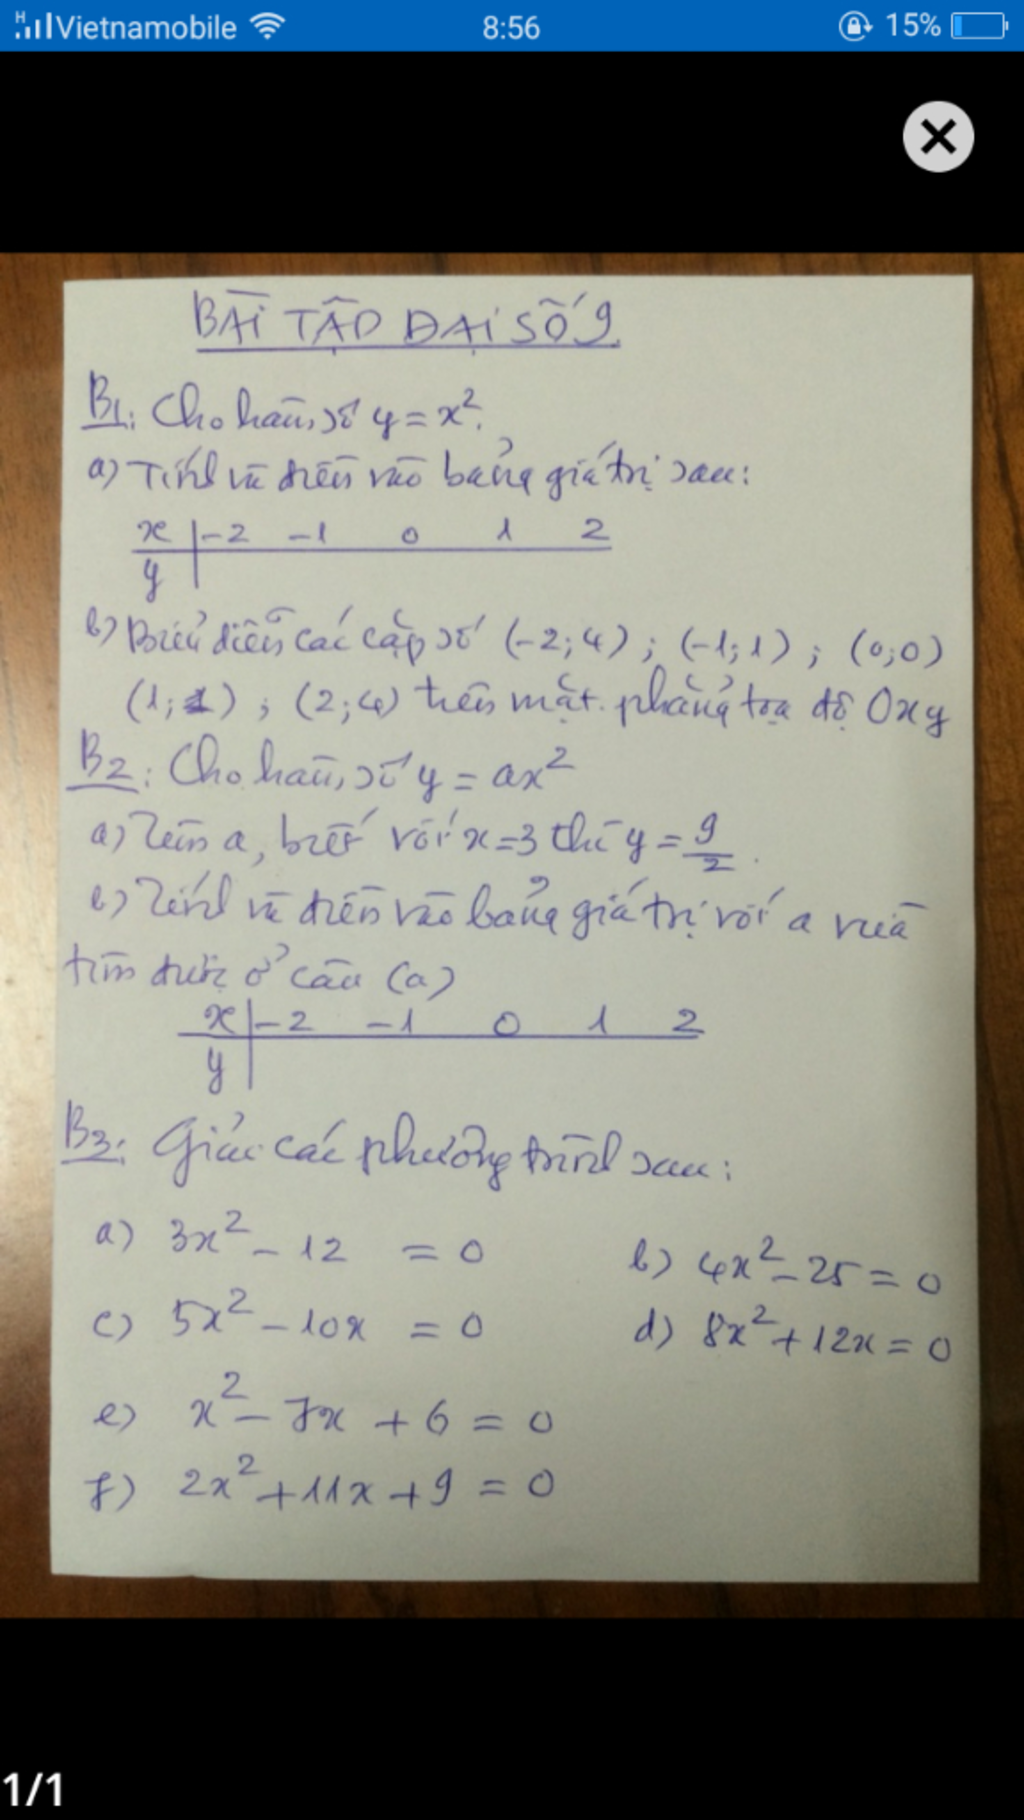 Vietnamobile 8:56 15%
BÀI TẬP ĐẠI SỐ 9
B1: Cho hàm số y = x².
a) Tính và điền vào bảng giá trị sau:
x | -2 -1 0 1 2
y |
b) Biểu diễn các cặp số (-2;4) ; (-1;1) ; (0;0)
(1;1) ; (2;4) trên mặt phẳng tọa độ Oxy
B2: Cho hàm số y = ax²
a) Tìm a, biết với x=3 thì y = 9/2.
b) Tính và điền vào bảng giá trị với a vừa
tìm được ở câu (a)
x | -2 -1 0 1 2
y |
B3: Giải các phương trình sau:
a) 3x² - 12 = 0 b) 4x² - 25 = 0
c) 5x² - 10x = 0 d) 8x² + 12x = 0
e) x² - 7x + 6 = 0
f) 2x² + 11x + 9 = 0
1/1